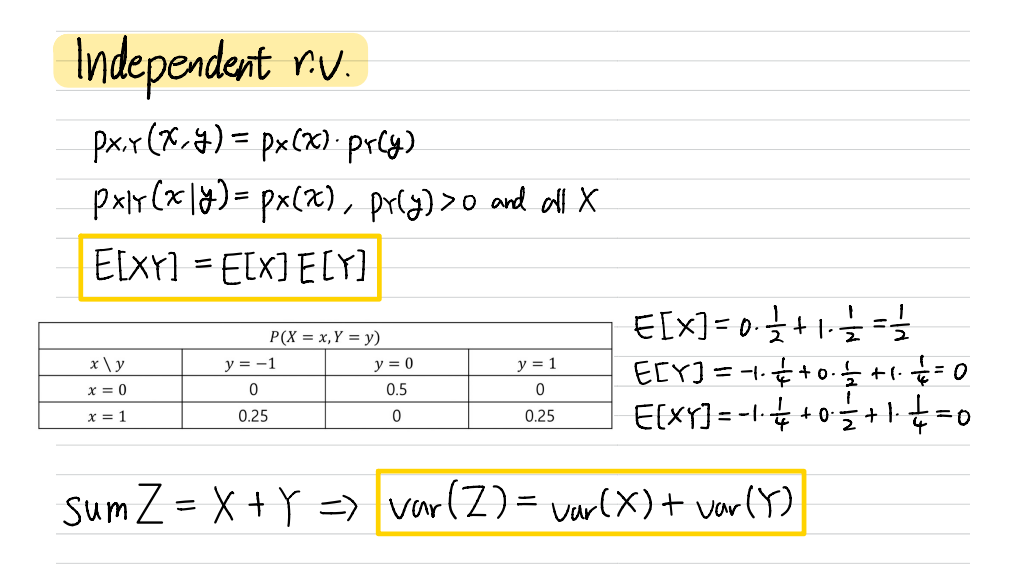 Independent r.v.
pX,Y(x,y) = pX(x)·pY(y)
pX|Y(x|y) = pX(x), pY(y)>0 and all X
E[XY] = E[X]E[Y]
P(X = x, Y = y)
x \ y y = −1 y = 0 y = 1
x = 0 0 0.5 0
x = 1 0.25 0 0.25
E[X] = 0·1/2 + 1·1/2 = 1/2
E[Y] = -1·1/4 + 0·1/2 + 1·1/4 = 0
E[XY] = -1·1/4 + 0·1/2 + 1·1/4 = 0
sum Z = X + Y ⇒ var(Z) = var(X) + var(Y)